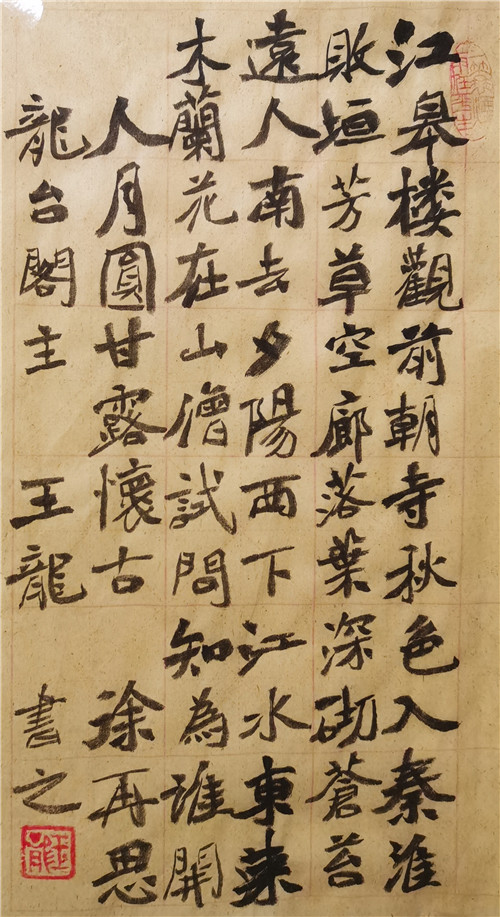 江皋楼觀前朝寺秋色入秦淮
敗垣芳草空廊落葉深砌蒼苔
遠人南去夕陽西下江水東來
木蘭花在山僧試問知為誰開
人月圓甘露懷古 徐再思
龍台閣主 王龍 書之